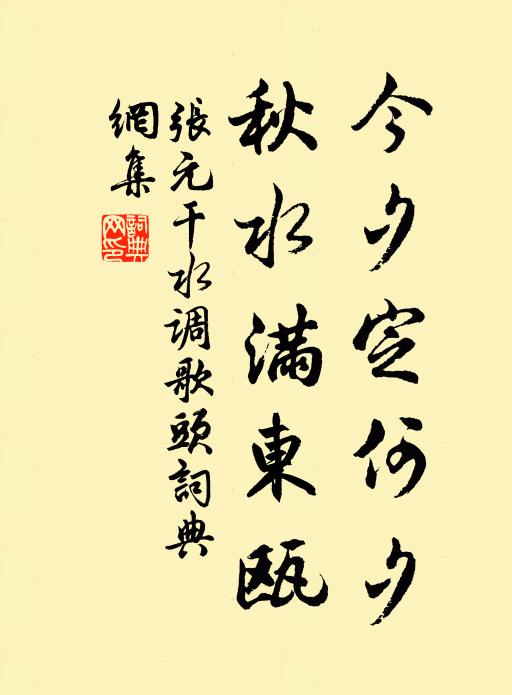 今夕定何夕
秋水滿東甌
張元干水调歌頭詞典
網集
詞典
网印